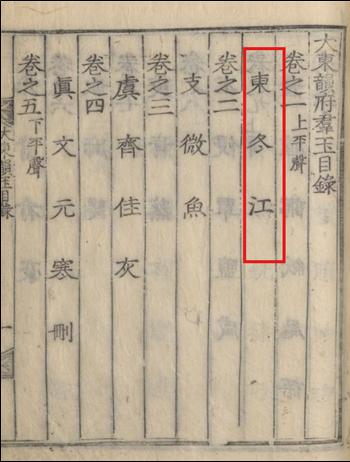 大東韻府羣玉目錄
卷之一上平聲
東冬江
卷之二
支微魚
卷之三
虞齊佳灰
卷之四
眞文元寒刪
卷之五下平聲
大東韻玉目錄
一